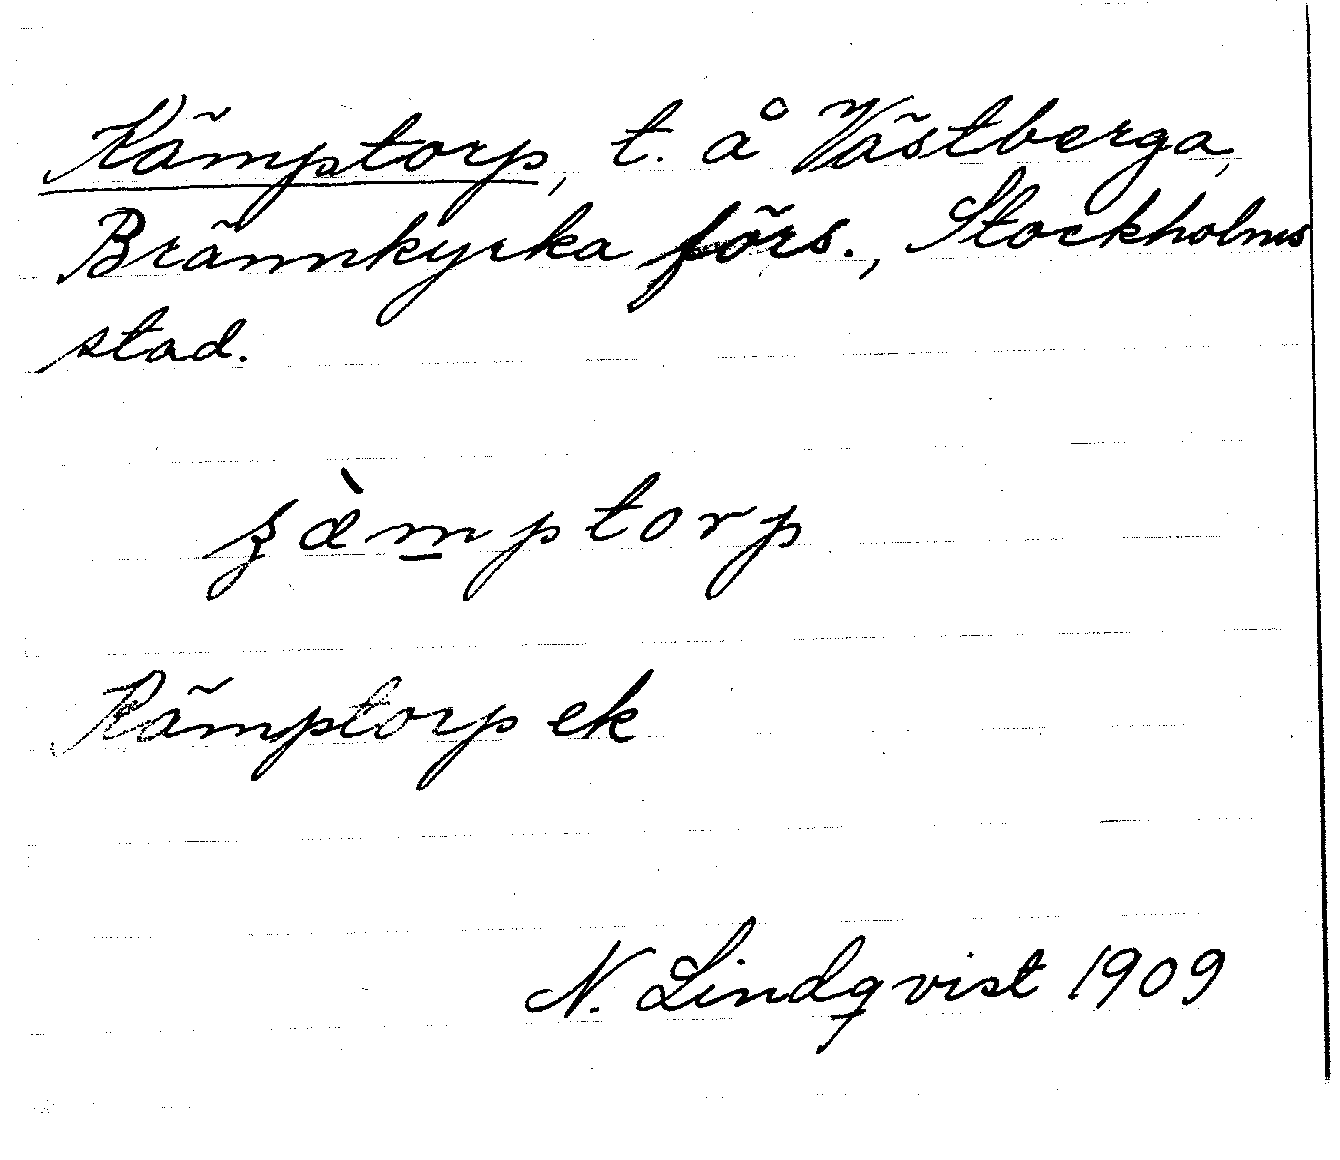 Kämptorp, t. å Västberga,
Brännkyrka förs., Stockholms
stad.
ʂæ̀m̱ptorp
Kämptorp ek
N. Lindqvist 1909